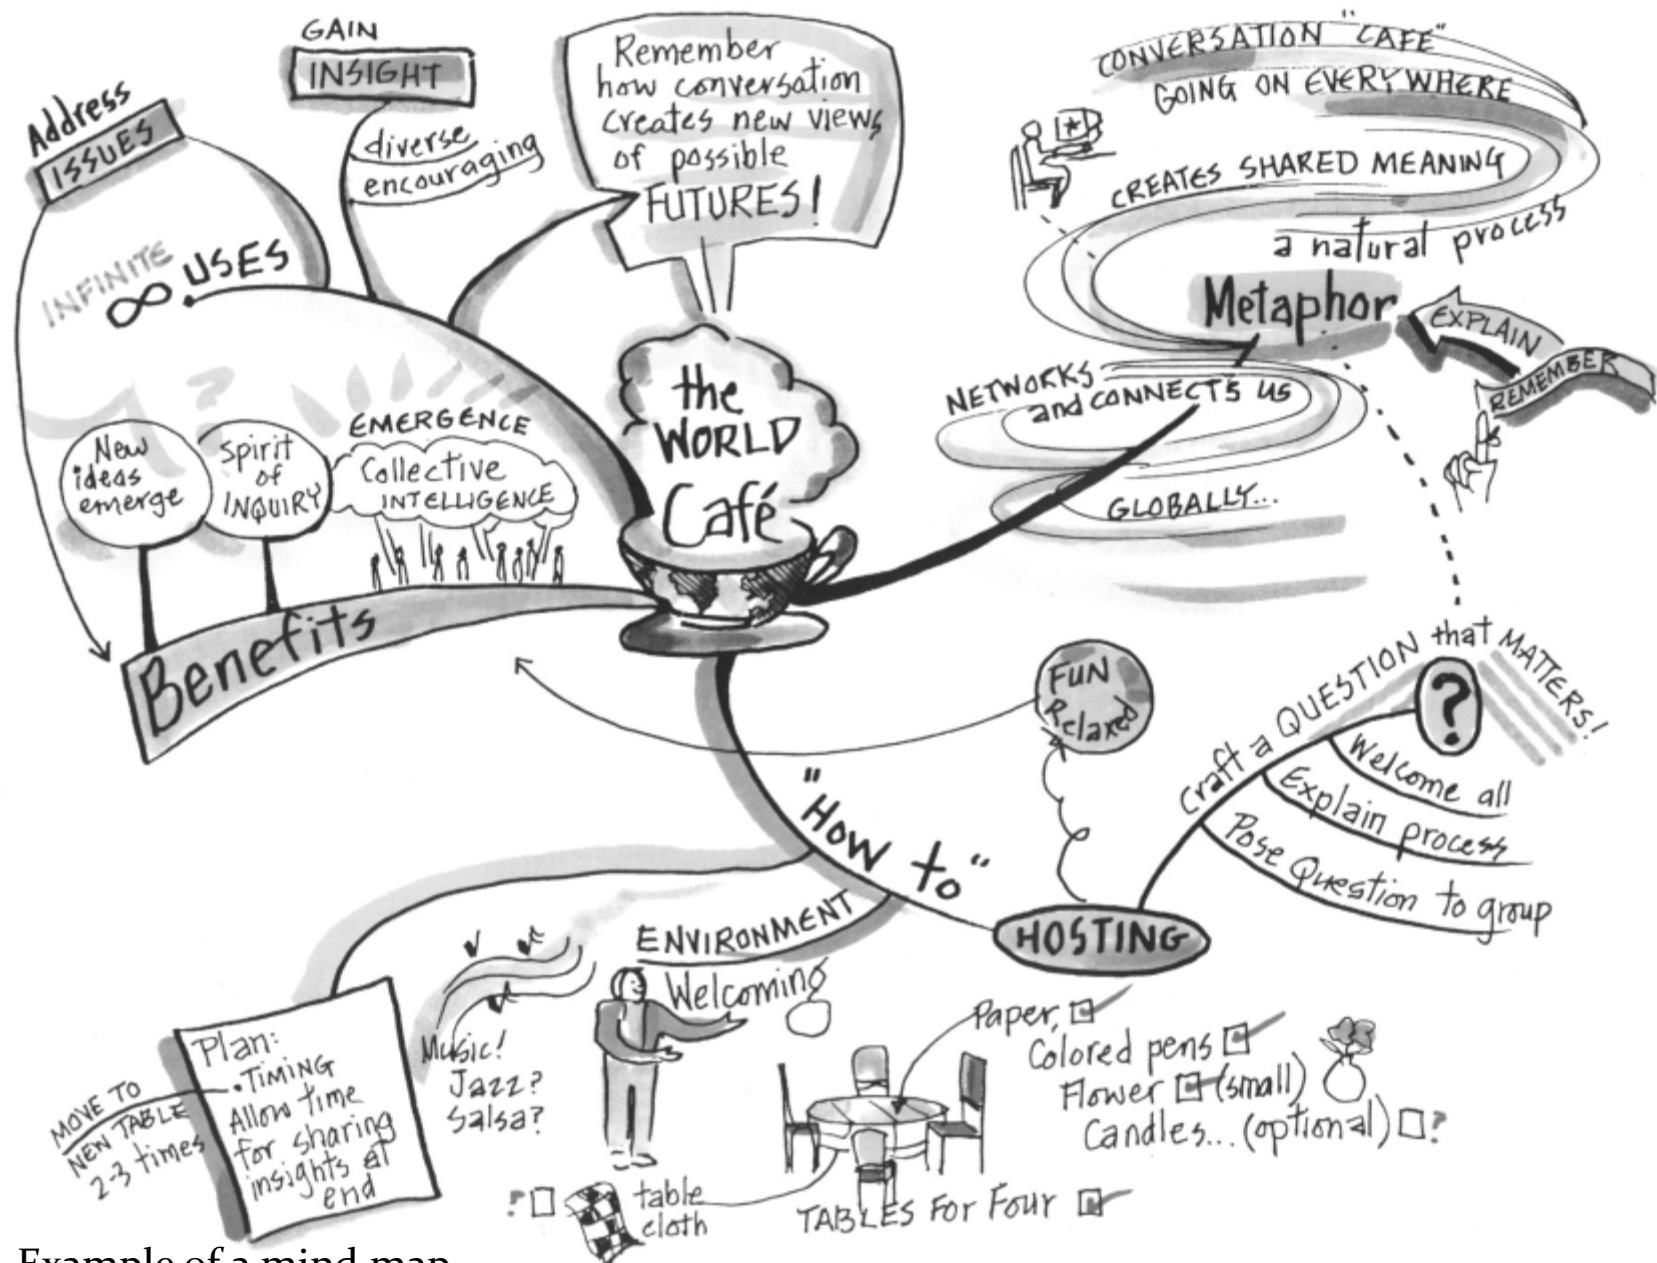 GAIN
INSIGHT
diverse
encouraging
Address
ISSUES
INFINITE
∞ USES
Remember
how conversation
creates new views
of possible
FUTURES!
CONVERSATION "CAFE"
GOING ON EVERYWHERE
CREATES SHARED MEANING
a natural process
Metaphor
EXPLAIN
REMEMBER
NETWORKS
and CONNECTS US
GLOBALLY...
the
WORLD
Café
?
New
ideas
emerge
Spirit
of
INQUIRY
EMERGENCE
Collective
INTELLIGENCE
Benefits
FUN
Relaxed
Craft a QUESTION that MATTERS!
?
Welcome all
Explain process
Pose Question to group
"How to"
HOSTING
ENVIRONMENT
Welcoming
Music!
Jazz?
Salsa?
Plan:
• TIMING
Allow time
for sharing
insights at
end
MOVE TO
NEW TABLE
2-3 times
Paper,
Colored pens
Flower (small)
Candles... (optional) ?
?
table
cloth
TABLES For Four
Example of a mind map